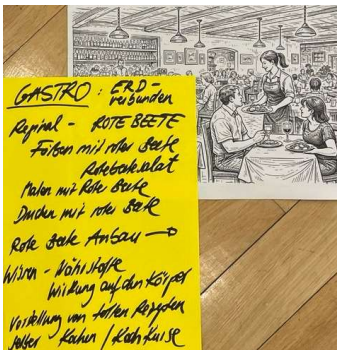 GASTRO : ERD-
verbunden
Regional - ROTE BEETE
Färben mit roter Beete
Rotebeetesalat
Malen mit Rote Beete
Drucken mit roter Beete
Rote Beete Anbau →
Wissen - Nährstoffe
Wirkung auf den Körper
Vorstellung von tollen Rezepten
selber Kochen / Kochkurse